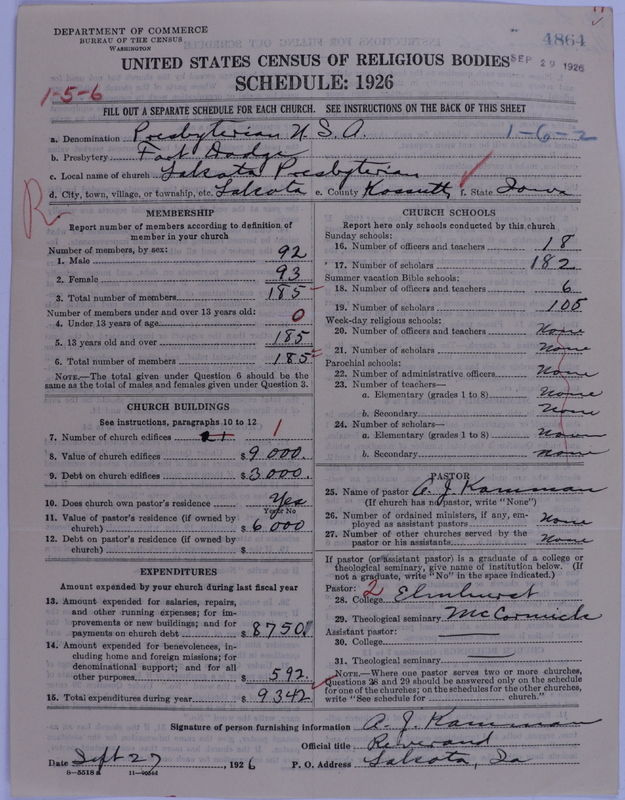 DEPARTMENT OF COMMERCE
BUREAU OF THE CENSUS
WASHINGTON
4864
UNITED STATES CENSUS OF RELIGIOUS BODIES
SEP 29 1926
SCHEDULE: 1926
1-5-6
FILL OUT A SEPARATE SCHEDULE FOR EACH CHURCH. SEE INSTRUCTIONS ON THE BACK OF THIS SHEET
a. Denomination Presbyterian U.S.A. 1-6-2
b. Presbytery Fort Dodge
c. Local name of church Lakota Presbyterian
d. City, town, village, or township, etc. Lakota e. County Kossuth f. State Iowa
R
MEMBERSHIP
Report number of members according to definition of
member in your church
Number of members, by sex:
1. Male 92
2. Female 93
3. Total number of members 185
Number of members under and over 13 years old:
4. Under 13 years of age 0
5. 13 years old and over 185
6. Total number of members 185
NOTE.—The total given under Question 6 should be
same as the total of males and females given under Question 3.
CHURCH BUILDINGS
See instructions, paragraphs 10 to 12
7. Number of church edifices 1
8. Value of church edifices $ 9000.
9. Debt on church edifices $ 3000.
10. Does church own pastor's residence Yes
Yes or No
11. Value of pastor's residence (if owned by
church) $ 6000
12. Debt on pastor's residence (if owned by
church) $
EXPENDITURES
Amount expended by your church during last fiscal year
13. Amount expended for salaries, repairs,
and other running expenses; for im-
provements or new buildings; and for
payments on church debt $ 8750
14. Amount expended for benevolences, in-
cluding home and foreign missions; for
denominational support; and for all
other purposes $ 592.
15. Total expenditures during year $ 9342
CHURCH SCHOOLS
Report here only schools conducted by this church
Sunday schools:
16. Number of officers and teachers 18
17. Number of scholars 182
Summer vacation Bible schools:
18. Number of officers and teachers 6
19. Number of scholars 105
Week-day religious schools:
20. Number of officers and teachers None
21. Number of scholars None
Parochial schools:
22. Number of administrative officers None
23. Number of teachers—
a. Elementary (grades 1 to 8) None
b. Secondary None
24. Number of scholars—
a. Elementary (grades 1 to 8) None
b. Secondary None
PASTOR
25. Name of pastor A. J. Kamman
(If church has no pastor, write "None")
26. Number of ordained ministers, if any, em-
ployed as assistant pastors None
27. Number of other churches served by the
pastor or his assistants None
If pastor (or assistant pastor) is a graduate of a college or
theological seminary, give name of institution below. (If
not a graduate, write "No" in the space indicated.)
Pastor: 2
28. College Elmhurst
29. Theological seminary McCormick
Assistant pastor:
30. College
31. Theological seminary
NOTE.—Where one pastor serves two or more churches,
Questions 28 and 29 should be answered only on the schedule
for one of the churches; on the schedules for the other churches,
write "See schedule for church."
Signature of person furnishing information A. J. Kamman
Official title Reverand
Date Sept 27, 1926 P. O. Address Lakota, Ia
8—5518a 11—9054d